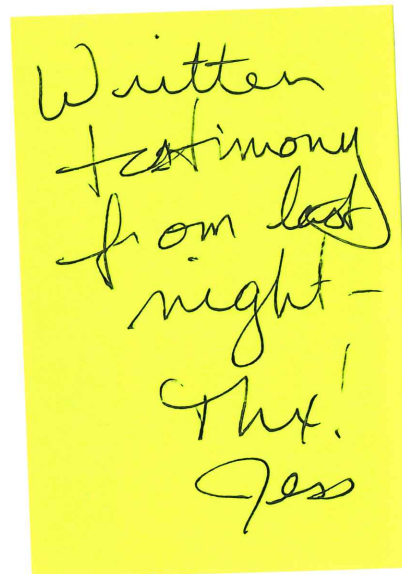 Written
testimony
from last
night-
Thx!
Jess